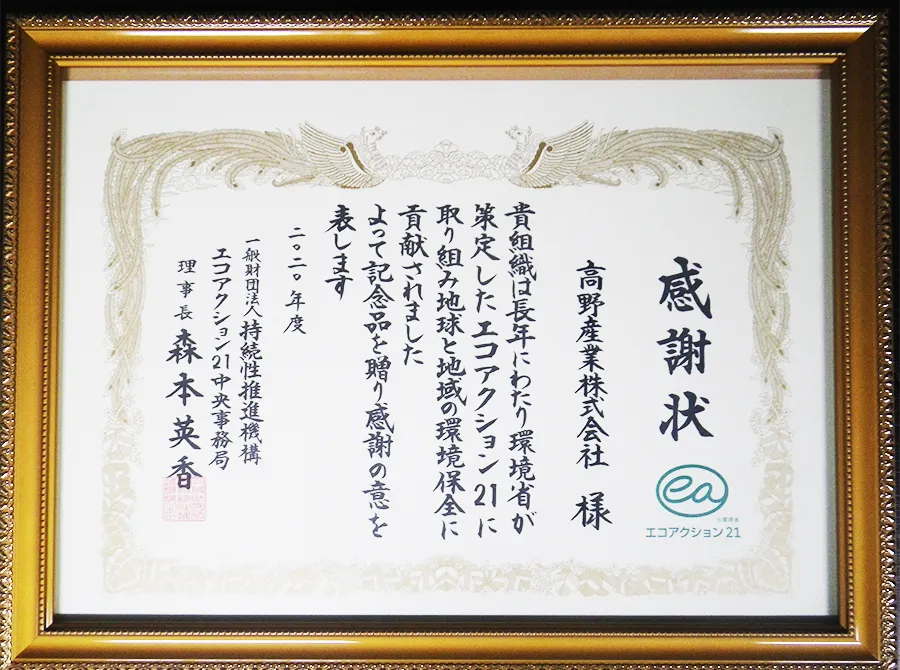 感謝状
ea
エコアクション21
高野産業株式会社 様
貴組織は長年にわたり環境省が
策定したエコアクション21に
取り組み地球と地域の環境保全に
貢献されました
よって記念品を贈り感謝の意を
表します
二〇二〇年度
一般財団法人持続性推進機構
エコアクション21中央事務局
理事長 森本英香